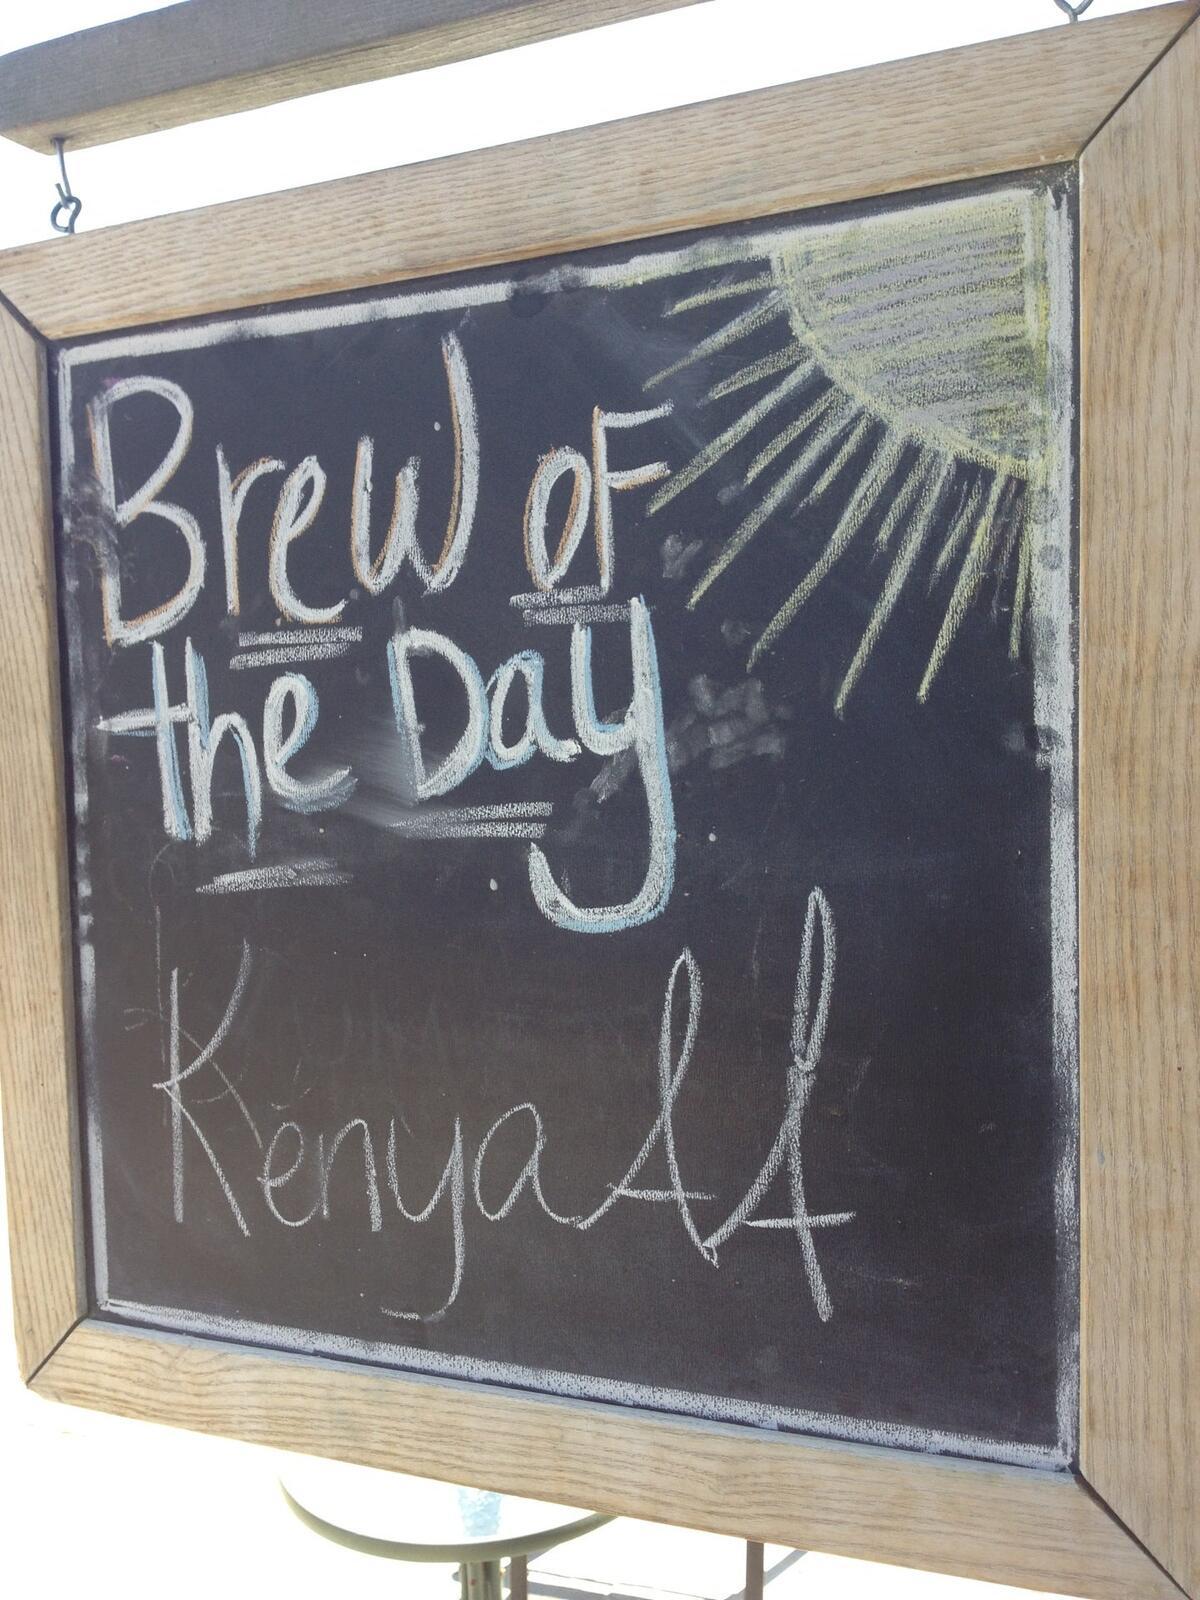 Brew of
the Day
Kenya AA